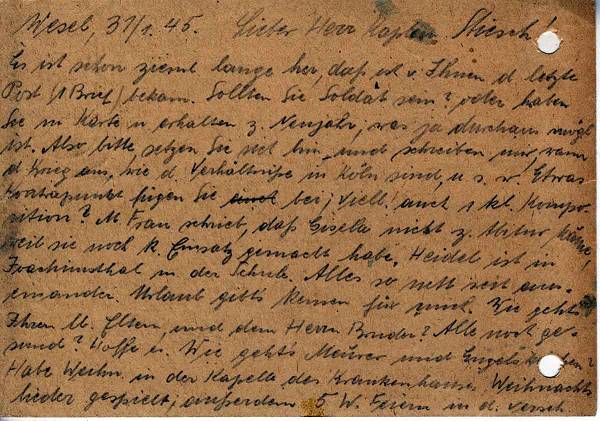 Wesel, 31/1.45. Lieber Herr Kaplan Stiesch!
Es ist schon ziemL lange her, daß ich v. Ihnen d letzte
Post (1 Brief) bekam. Sollten Sie Soldat sein? oder haben
Sie m Karte n erhalten z. Neujahr, was ja durchaus mögl
ist. Also bitte setzen Sie sich hin und schreiben mir wann
d Krieg aus, wie d. Verhältnisse in Köln sind, u s. w! Etwas
Kontrapunkt fügen Sie auch bei; viell. auch 1 kl. Kompo-
sition? M Frau schrieb, daß Gisela nicht z. Abitur käme,
weil sie noch k. Einsatz gemacht habe. Heidel ist in
Joachimsthal in der Schule. Alles so nett seit aus-
einander. Urlaub gibts keinen für mich. Wie gehts
Ihren lb. Eltern, und dem Herrn Bruder? Alle noch ge-
sund? Hoffe es. Wie gehts Meurer und
Habe Weihn. in der Kapelle des Krankenhauses Weihnachts
lieder gespielt; außerdem 5 W. Feiern in d. versch.